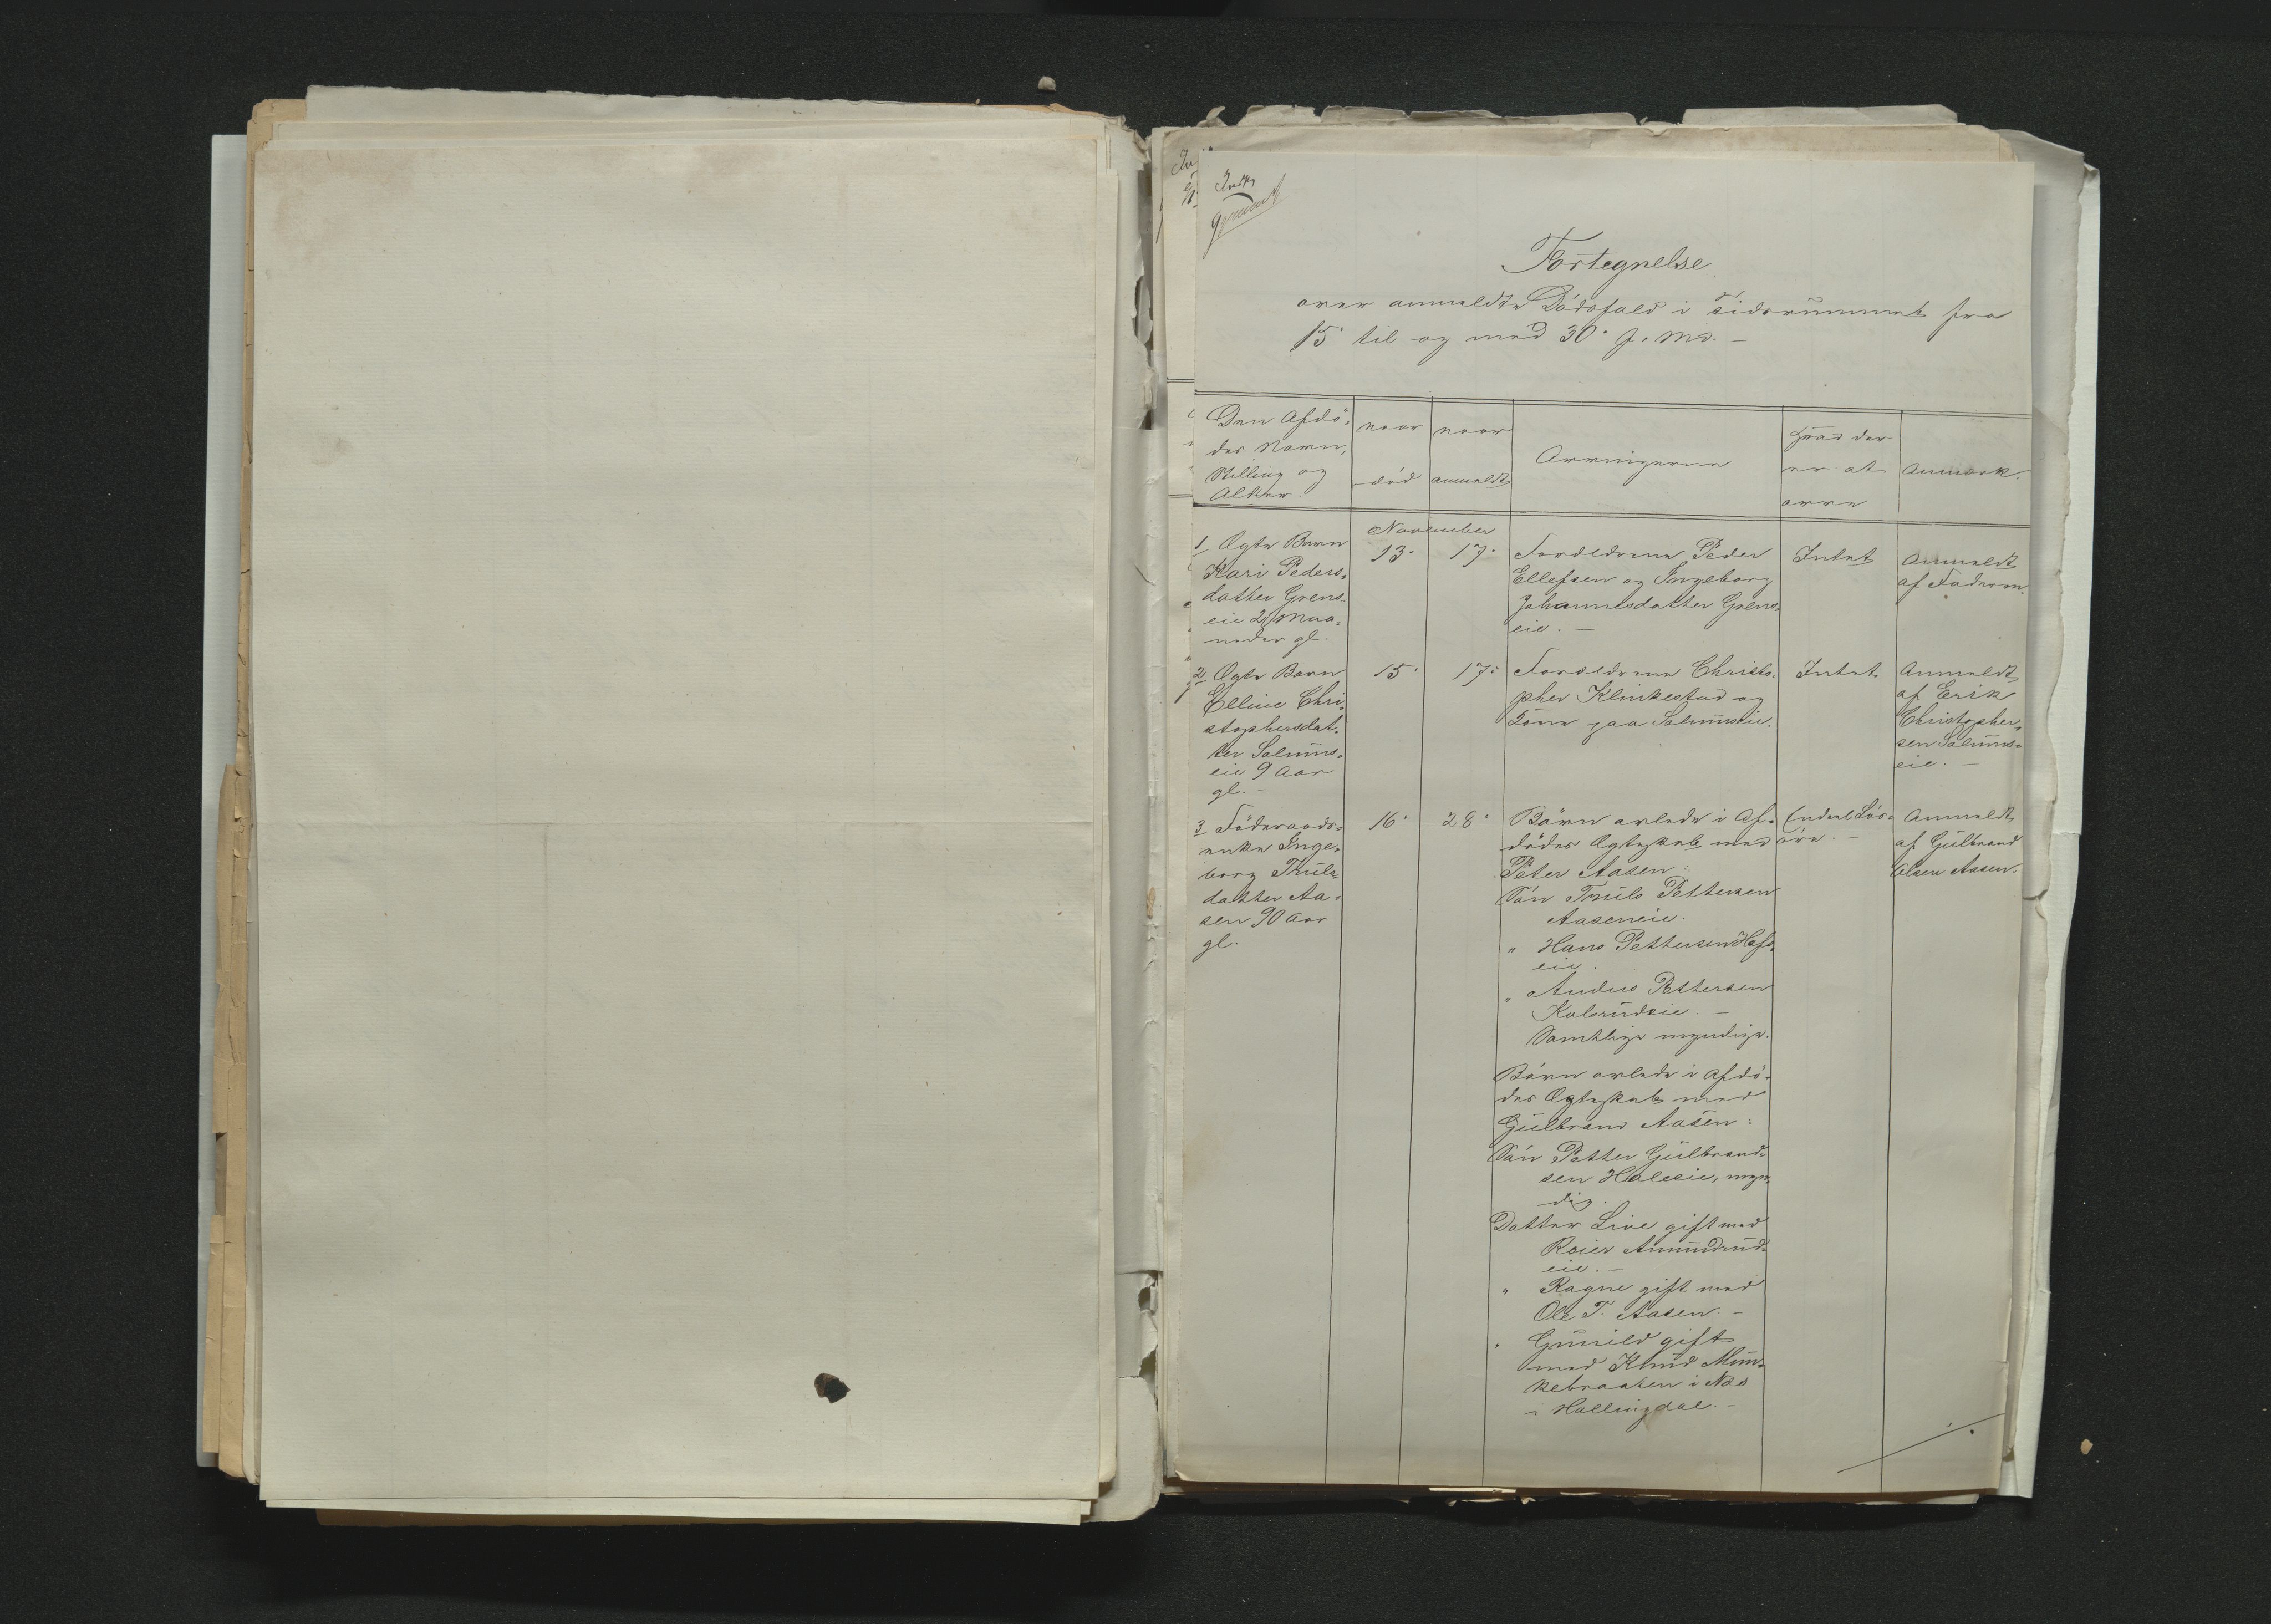 Indk
Fortegnelse
over anmeldte Dödsfald i Tidsrummet fra
15 til og med 30. f. Md. –
Den Afdö-
des Navn,
Stilling og
Alder.
naar
död
naar
anmeldt
Arvingerne
Hvad der
er at
arve
Anmærk.
November
1 Ægte Barn
Kari Peders-
datter Grens-
eie 2½ Maa-
neder gl.
13.
17.
Forældrene Peder
Ellefsen og Ingeborg
Johannesdatter Grens-
eie. –
Intet
Anmeldt
af Faderen.
2 Ægte Barn
Elline Chri-
stophersdat-
ter Solums-
eie 9 Aar
gl. –
15.
17.
Forældrene Christo-
pher Klinkestad og
Kone paa Solumseie.
Intet
Anmeldt
af Erik
Christopher-
sen Solums-
eie. –
3 Föderaads-
enke Inge-
borg Truls-
datter Aa-
sen 90 Aar
gl.
16.
28.
Börn avlede i Af-
dödes Ægteskab med
Peter Aasen:
Sön Truls Pettersen
Aaseneie.
" Hans Pettersen Hafs-
eie.
" Anders Pettersen
Kolsrudeie. –
Samtlige myndige.
Börn avlede i Afdö-
des Ægteskab med
Gulbrand Aasen:
Sön Petter Gulbrand-
sen Haleeie, myn-
dig.
Datter Live gift med
Reier Amundrud-
eie. –
" Ragne gift med
Ole T. Aasen. –
" Gunild gift
med Knud Mun-
kebraaten i Næs
i Hallingdal. –
Endel Lös-
öre. –
Anmeldt
af Gulbrand
Olsen Aasen.